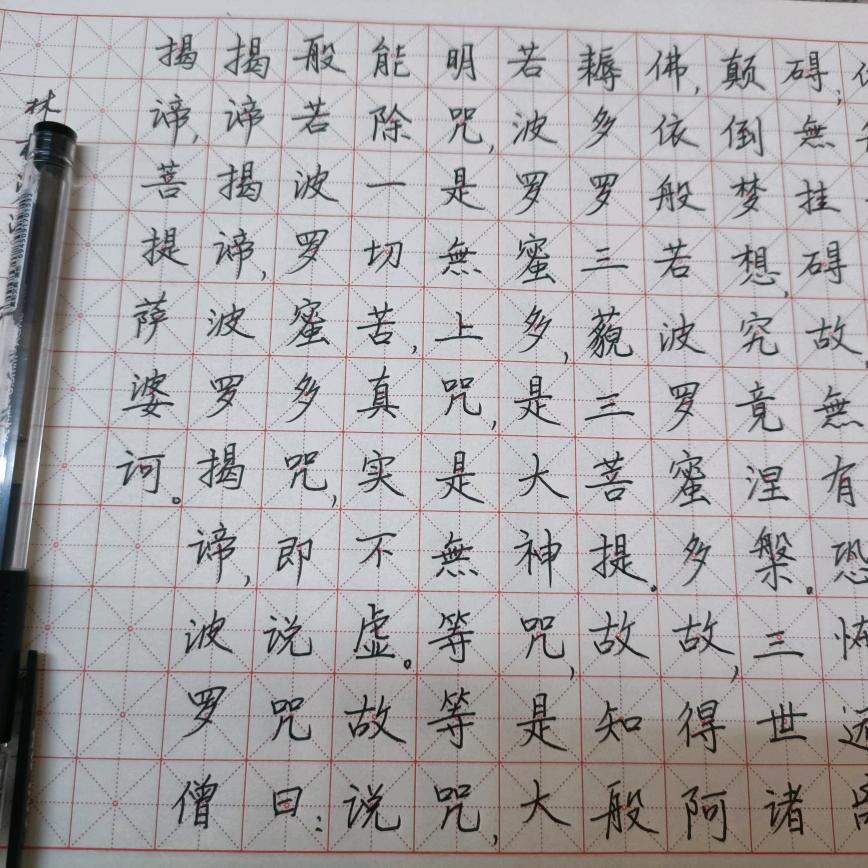 碍;無挂碍故,無有恐怖远
颠倒梦想,究竟涅槃。三世诸
佛,依般若波罗蜜多故,得阿
耨多罗三藐三菩提。故知般
若波罗蜜多,是大神咒,是大
明咒,是無上咒,是無等等咒,
能除一切苦,真实不虚。故说
般若波罗蜜多咒,即说咒曰:
揭谛揭谛,波罗揭谛,波罗僧
揭谛,菩提萨婆诃。
林